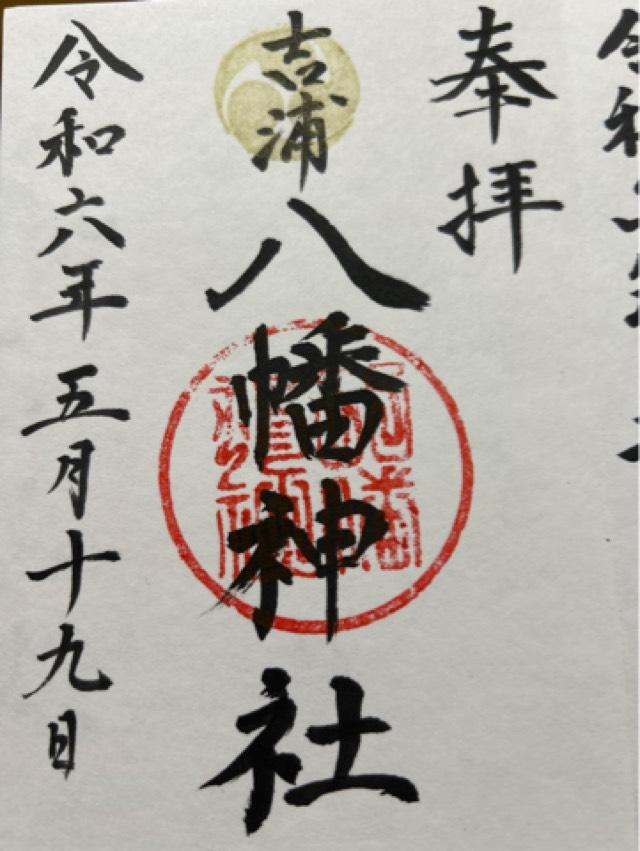 奉拝
吉浦
八幡神社
令和六年五月十九日